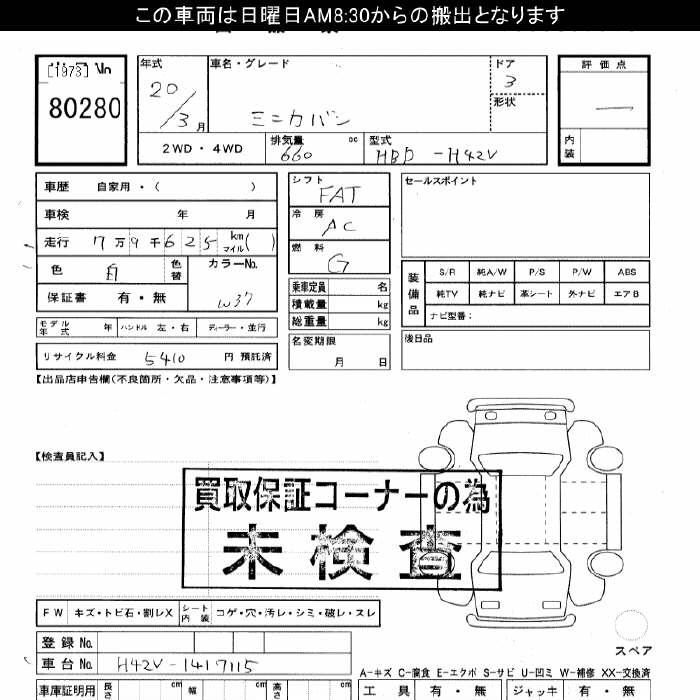 この車両は日曜日AM8:30からの搬出となります
[1973]
80280
年式 車名・グレード ドア 評価点
20/3月 ミニカバン 3 —
形状
2WD・4WD 排気量 660 cc 型式 HBD-H42V 内装
車歴 自家用・( )
車検 年 月
走行 7万9千625 km マイル( )
色 白 色替 カラーNo. W37
保証書 有・無
モデル年式 年 ハンドル 左・右 ディーラー・並行
リサイクル料金 5410 円 預託済
シフト FAT
冷房 AC
燃料 G
乗車定員 名
積載量 kg
総重量 kg
名変期限 月 日
セールスポイント
装備品 S/R 純A/W P/S P/W ABS
純TV 純ナビ 革シート 外ナビ エアB
ナビ型番:
後日品
【出品店申告欄(不良箇所・欠品・注意事項等)】
【検査員記入】
買取保証コーナーの為
未検査
FW キズ・トビ石・割レX シート内装 コゲ・穴・汚レ・シミ・破レ・スレ
登録No.
車台No. H42V-1417115
スペア
A-キズ C-腐食 E-エクボ S-サビ U-凹ミ W-補修 XX-交換済
車庫証明用 長さ cm 幅 cm 高さ cm 工具 有・無 ジャッキ 有・無